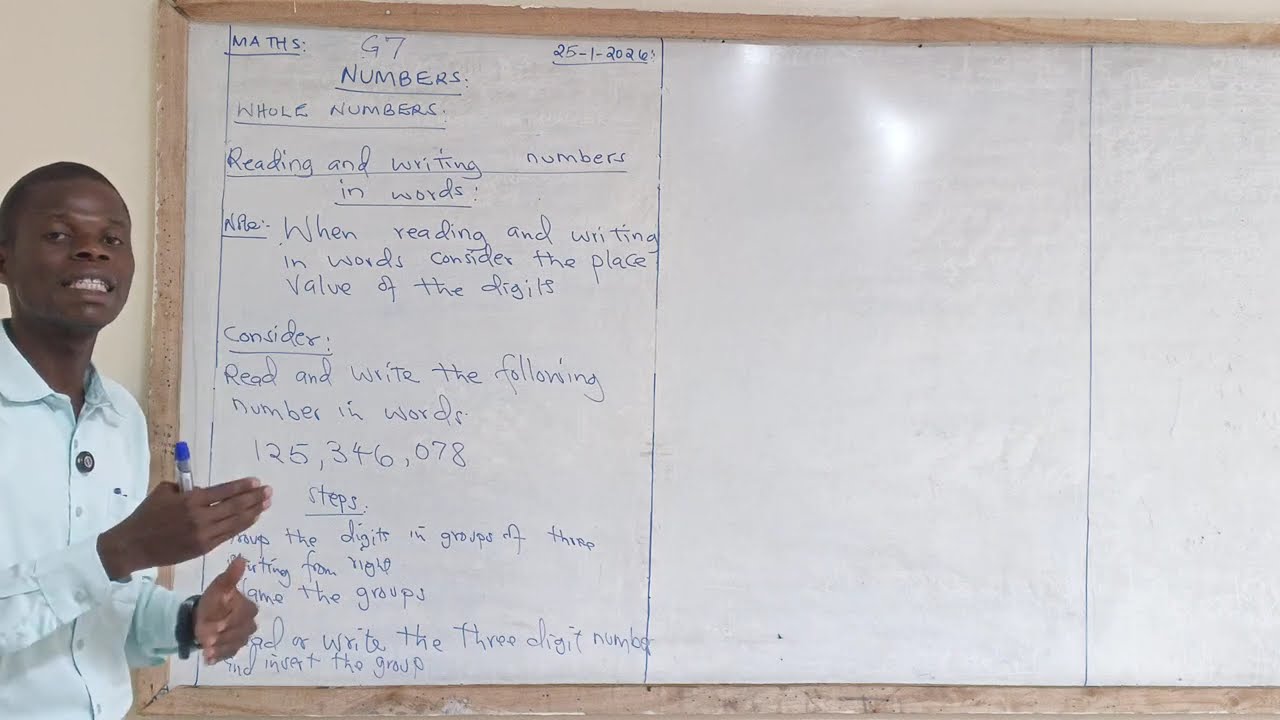 MATHS: G7 25-1-2026:
NUMBERS:
WHOLE NUMBERS:
Reading and writing numbers
in words:
Note:- When reading and writing
in words consider the place
value of the digits
Consider:
Read and write the following
number in words.
125,346,078
Steps:
the digits in groups of three
from right
the groups
or write the three digit number
insert the group